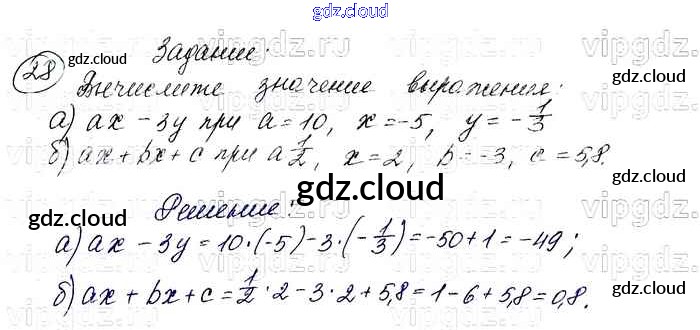 gdz.cloud
Задание:
28 Вычислите значение выражения:
а) ax - 3y при a = 10, x = -5, y = -1/3
б) ax + bx + c при a 1/2, x = 2, b = -3, c = 5,8.
Решение:
а) ax - 3y = 10·(-5) - 3·(-1/3) = -50 + 1 = -49;
б) ax + bx + c = 1/2 · 2 - 3 · 2 + 5,8 = 1 - 6 + 5,8 = 0,8.
gdz.cloud
gdz.cloud
gdz.cloud
gdz.cloud
gdz.cloud
gdz.cloud
vipgdz.ru
vipgdz.ru
vipgdz.ru